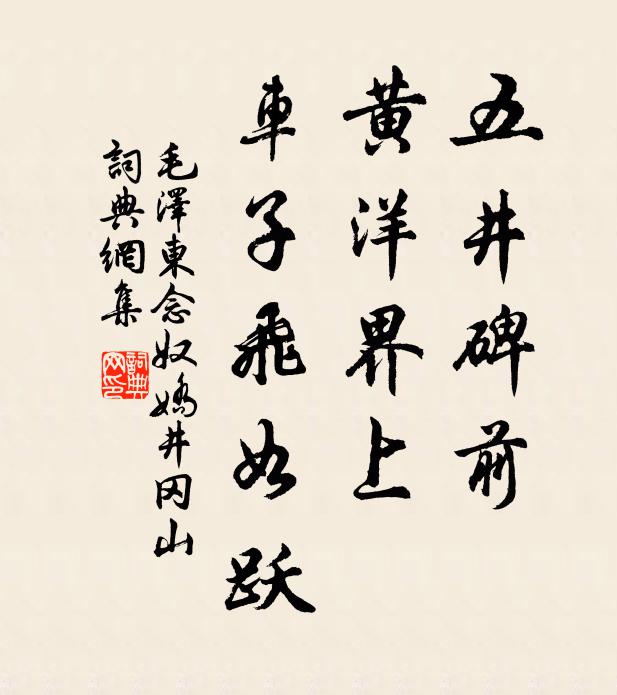 五井碑前
黄洋界上
車子飛如跃
毛澤東念奴嬌井冈山
詞典網集
詞典网印